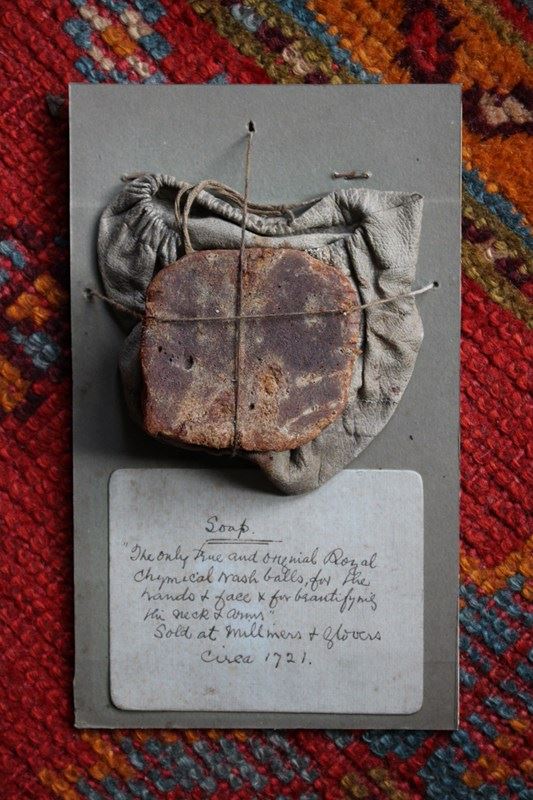 Soap.
"The only true and orignial Royal
Chymical wash balls, for the
hands & face & for beautifying
the neck & arms"
Sold at Milliners & Glovers
Circa 1721.